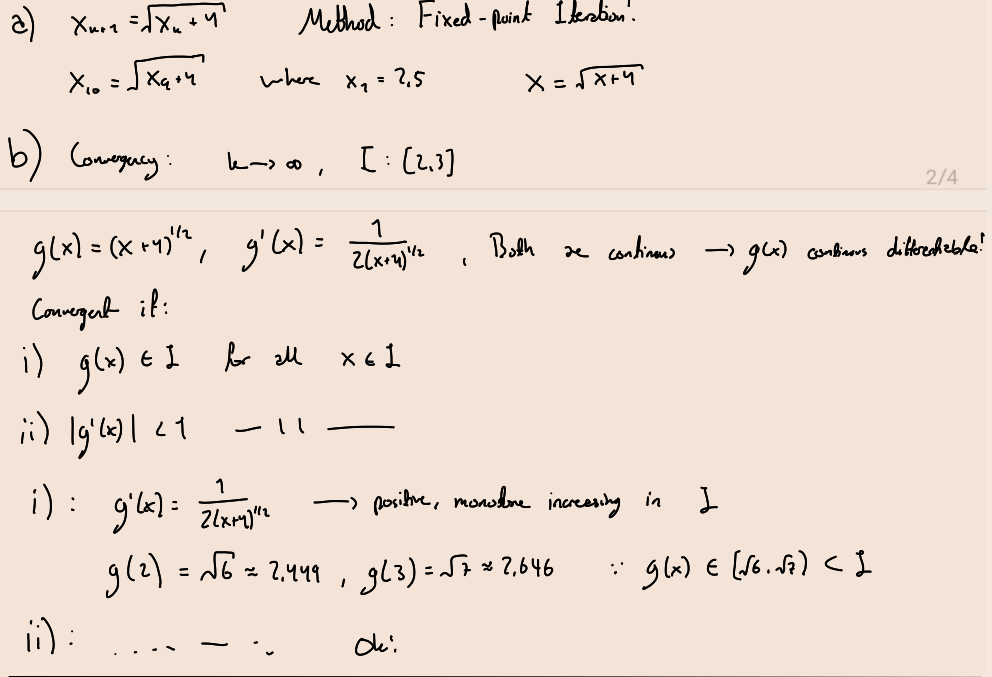 a) x_{k+1} = √(x_k + 4) Method: Fixed-point Iteration!
x_{10} = √(x_9 + 4) where x_1 = 2,5 x = √(x+4)
b) Convergency: k → ∞, I : [2,3]
2/4
g(x) = (x+4)^{1/2}, g'(x) = 1/(2(x+4)^{1/2}), Both are continous → g(x) continous differentiable!
Convergent if:
i) g(x) ∈ I for all x ∈ I
ii) |g'(x)| < 1 — 11 —
i): g'(x) = 1/(2(x+4)^{1/2}) → positive, monotone increasing in I
g(2) = √6 ≈ 2,449, g(3) = √7 ≈ 2,646 ∵ g(x) ∈ [√6, √7] ⊂ I
ii): .... — ·. Ok!